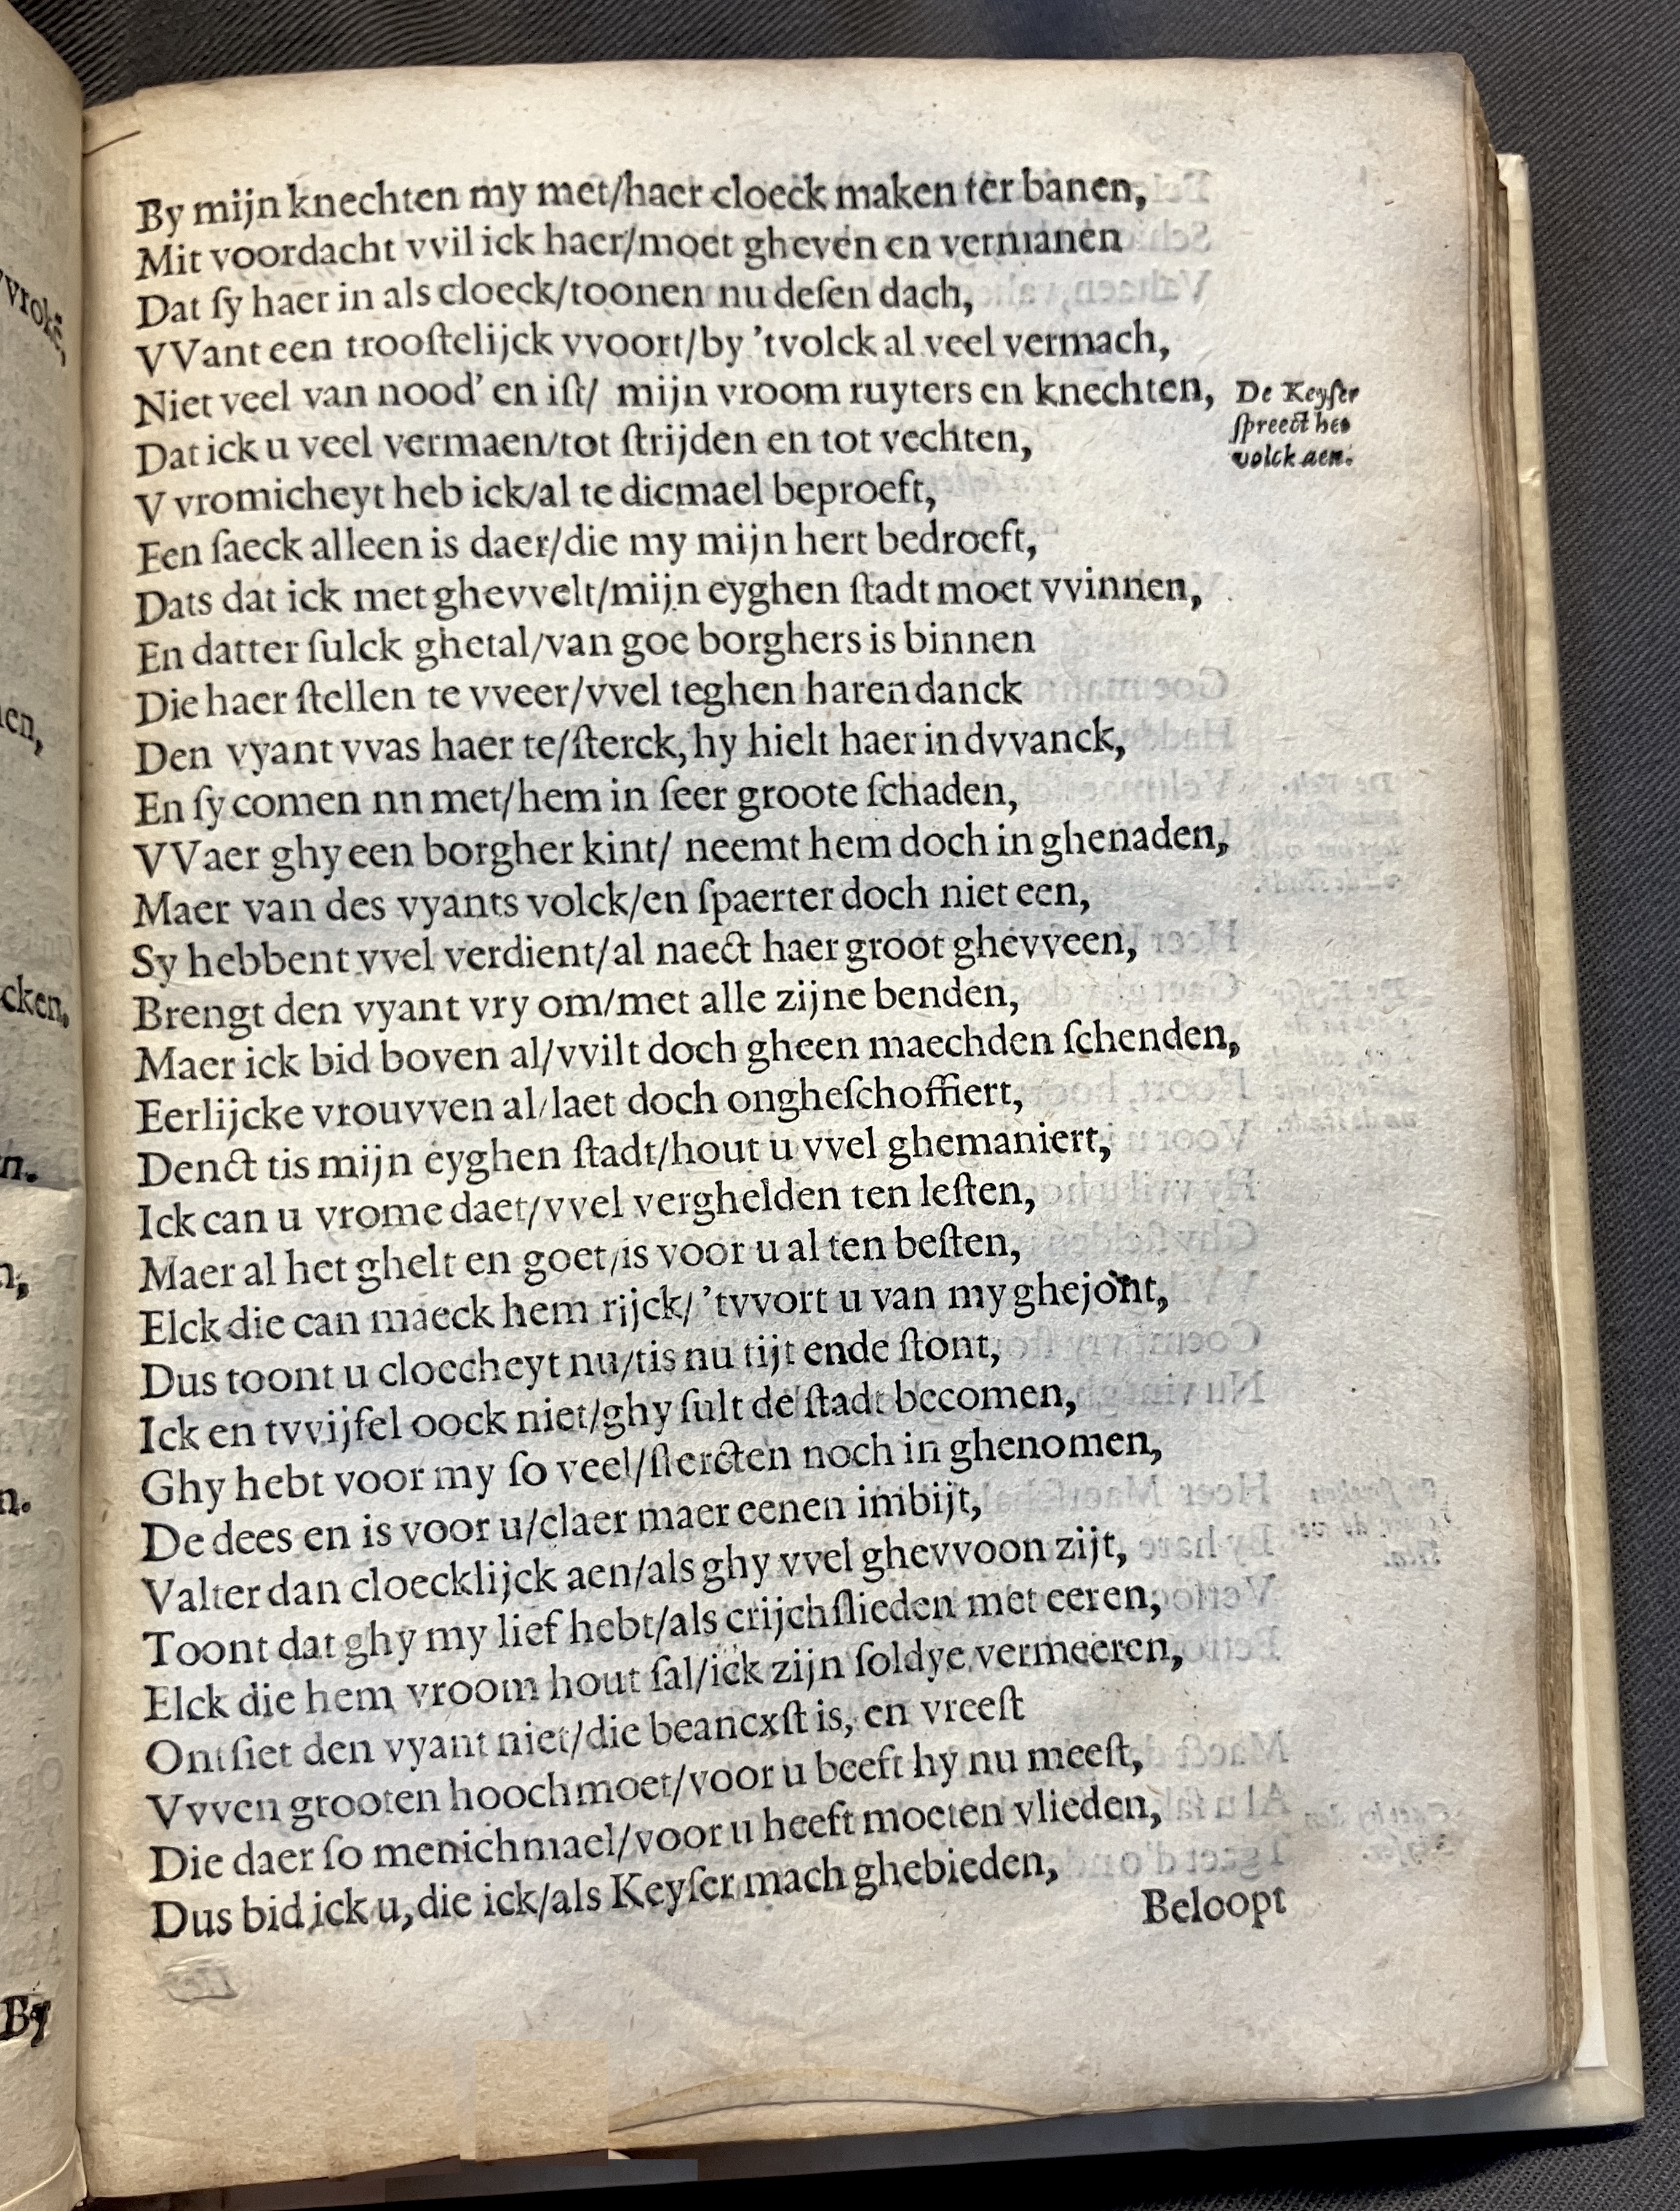 By mijn knechten my met/haer cloeck maken ter banen,
Mit voordacht vvil ick haer/moet gheven en vermanen
Dat ſy haer in als cloeck/toonen nu deſen dach,
VVant een trooſtelijck vvoort/by 'tvolck al veel vermach,
Niet veel van nood' en iſt/ mijn vroom ruyters en knechten,
De Keyſer
ſpreect het
volck aen.
Dat ick u veel vermaen/tot ſtrijden en tot vechten,
V vromicheyt heb ick/al te dicmael beproeft,
Een ſaeck alleen is daer/die my mijn hert bedroeft,
Dats dat ick met ghevvelt/mijn eyghen ſtadt moet vvinnen,
En datter ſulck ghetal/van goe borghers is binnen
Die haer ſtellen te vveer/vvel teghen haren danck
Den vyant vvas haer te/ſterck, hy hielt haer in dvvanck,
En ſy comen nn met/hem in ſeer groote ſchaden,
VVaer ghy een borgher kint/ neemt hem doch in ghenaden,
Maer van des vyants volck/en ſpaerter doch niet een,
Sy hebbent vvel verdient/al naect haer groot ghevveen,
Brengt den vyant vry om/met alle zijne benden,
Maer ick bid boven al/vvilt doch gheen maechden ſchenden,
Eerlijcke vrouvven al/laet doch ongheſchoffiert,
Denct tis mijn eyghen ſtadt/hout u vvel ghemaniert,
Ick can u vrome daet/vvel verghelden ten leſten,
Maer al het ghelt en goet/is voor u al ten beſten,
Elck die can maeck hem rijck/ 'tvvort u van my ghejont,
Dus toont u cloeckheyt nu/tis nu tijt ende ſtont,
Ick en tvvijfel oock niet/ghy ſult de ſtadt becomen,
Ghy hebt voor my ſo veel/ſtercten noch in ghenomen,
De dees en is voor u/claer maer eenen imbijt,
Valter dan cloecklijck aen/als ghy vvel ghevvoon zijt,
Toont dat ghy my lief hebt/als crijchſlieden met eeren,
Elck die hem vroom hout ſal/ick zijn ſoldye vermeeren,
Ontſiet den vyant niet/die beancxſt is, en vreeſt
Vvven grooten hoochmoet/voor u beeft hy nu meeſt,
Die daer ſo menichmael/voor u heeft moeten vlieden,
Dus bid ick u, die ick/als Keyſer mach ghebieden,
Beloopt